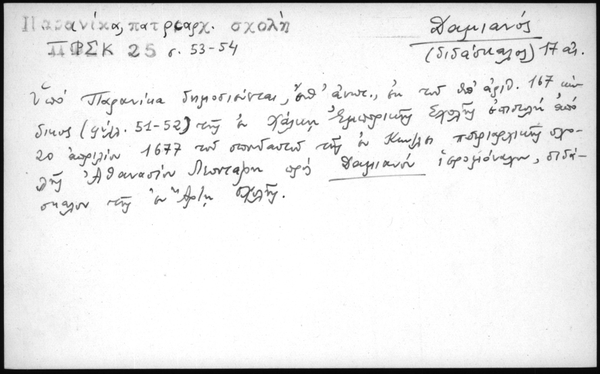 Παρανίκα, πατριαρχ. σχολὴ
ΠΦΣΚ 25 σ. 53-54
Δαμιανός
(διδάσκαλος) 17 αἰ.
Ὑπό Παρανίκα δημοσιεύεται, ἔνθ' ἀνωτ., ἐκ τοῦ ὑπ' ἀριθ. 167 κώ-
δικος (φύλλ. 51-52) τῆς ἐν Χάλκῃ Ἐμπορικῆς Σχολῆς ἐπιστολή ἀπό
20 ἀπριλίου 1677 τοῦ σπουδαστοῦ τῆς ἐν Κπόλει πατριαρχικῆς σχο-
λῆς Ἀθανασίου πρός Δαμιανόν ἱερομόναχον, διδά-
σκαλον τῆς ἐν Ἄρτῃ σχολῆς.